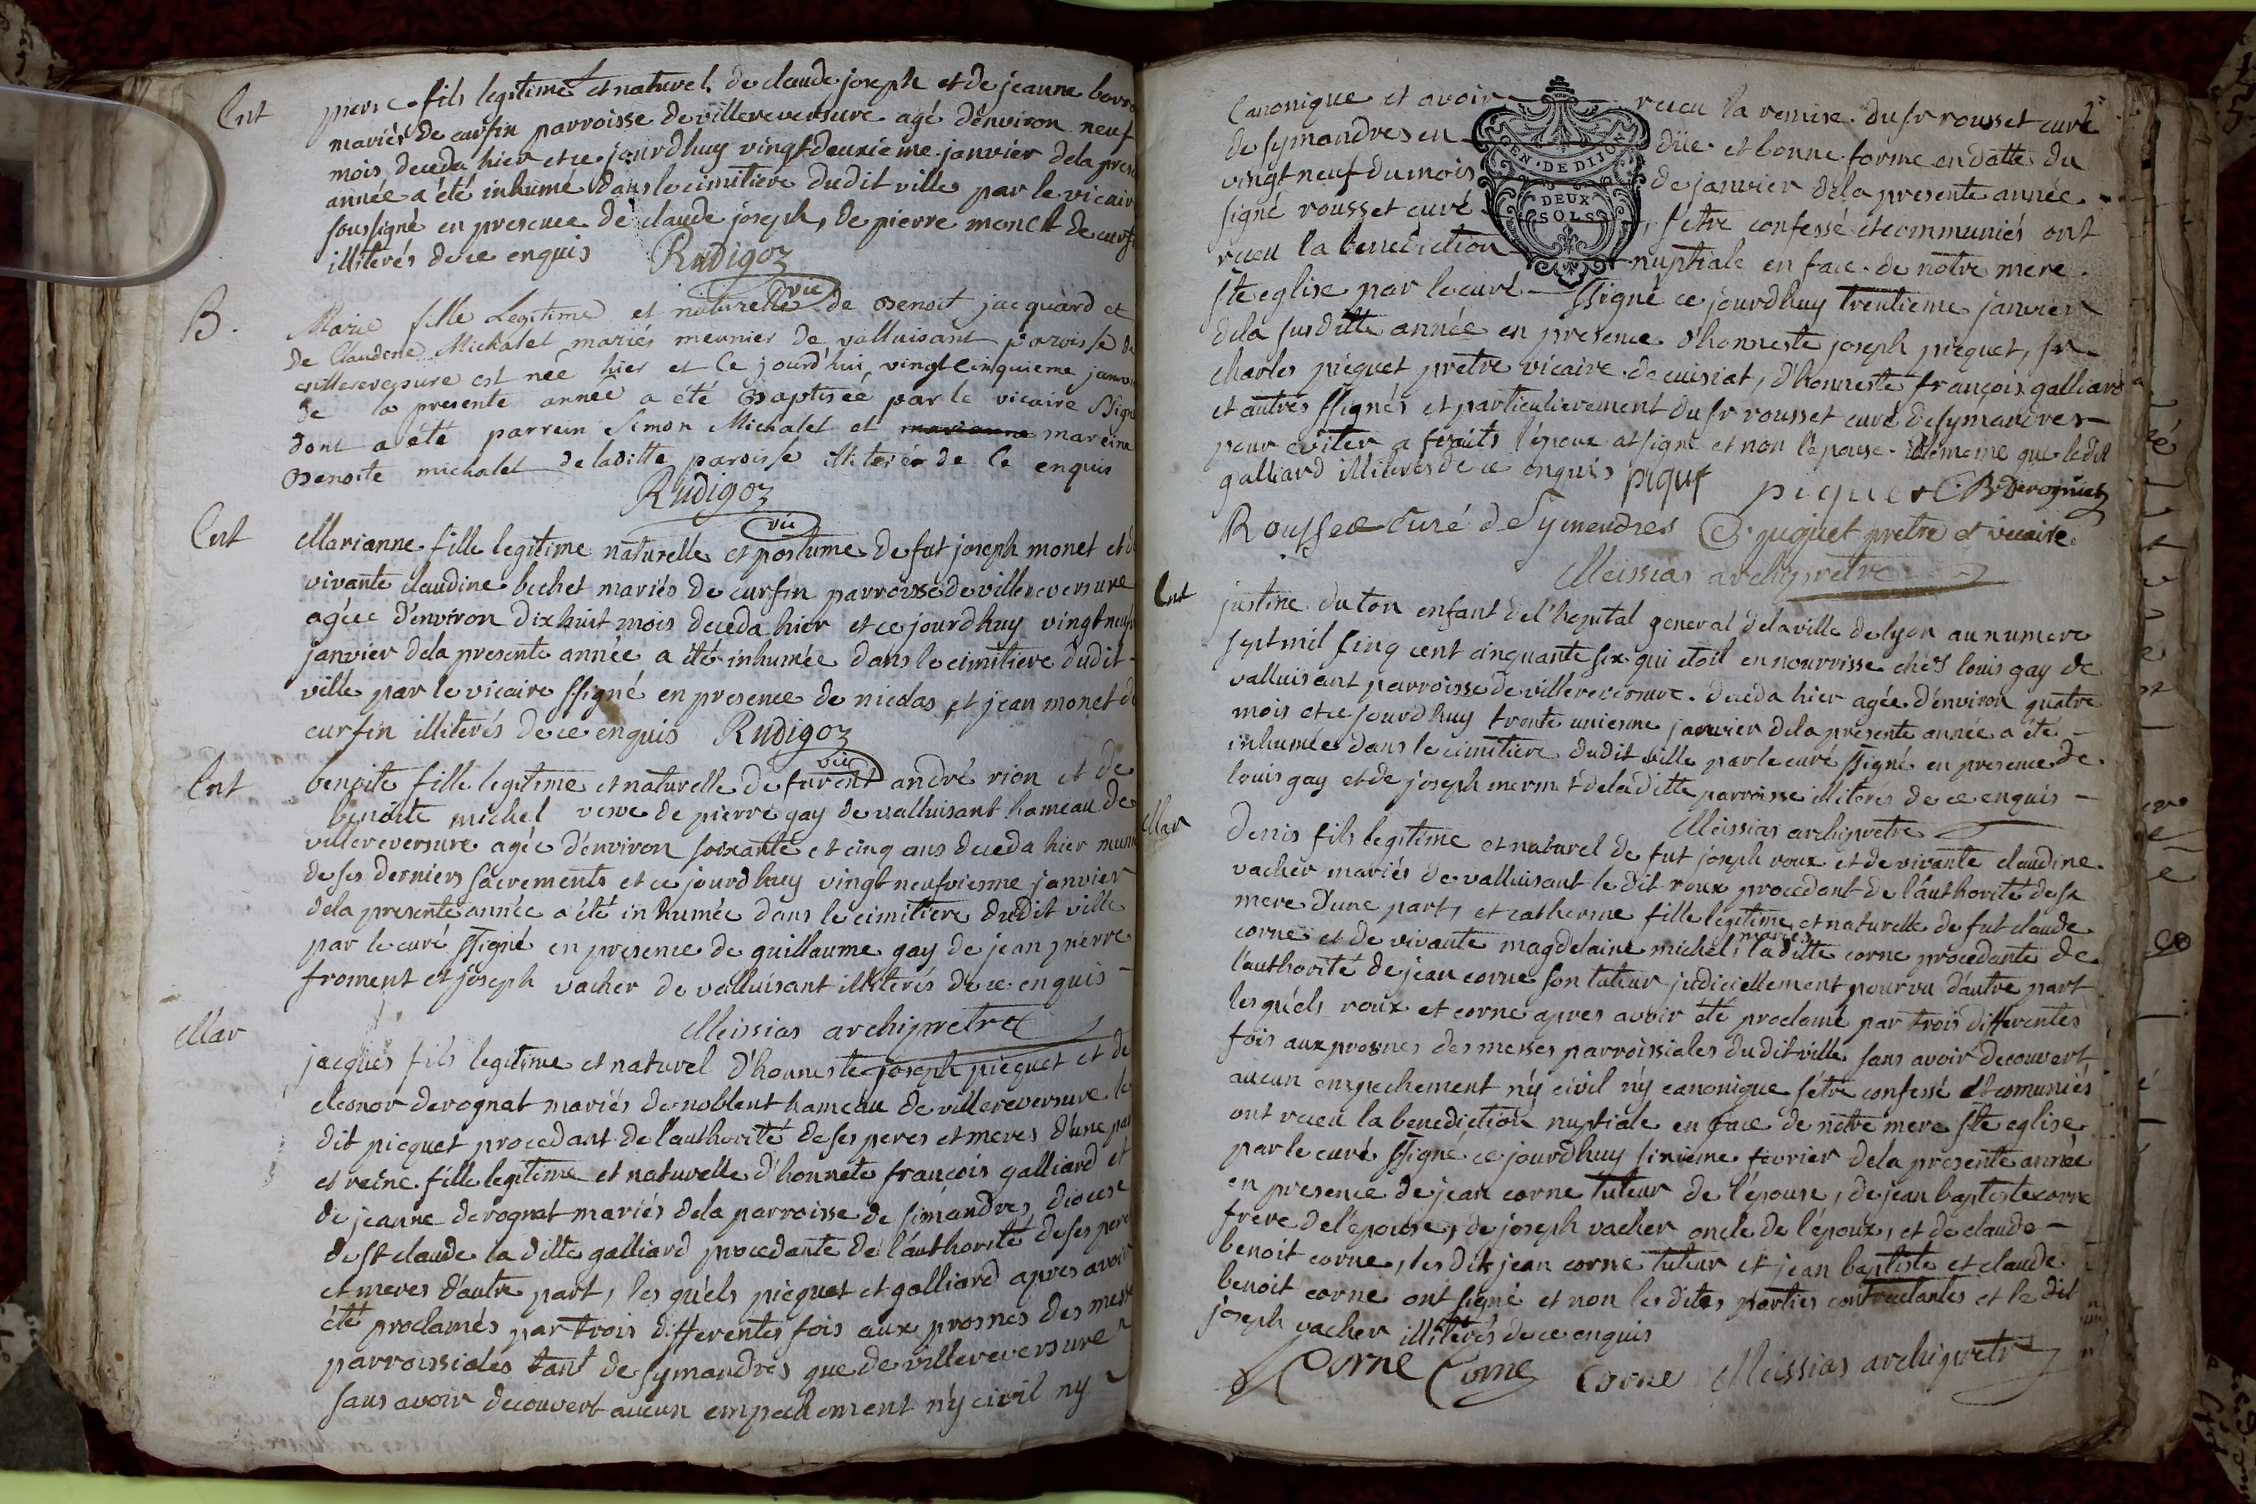 Ent
pierre fils legitime et naturel de claude joseph et de jeanne
mariés de curfin parroisse de villereversure agé d'environ neuf
mois, deceda hier et ce jourdhuy vingt deuxiéme janvier dela
année a été inhumé dans le cimitiere dudit ville par le vicaire
soussigné en presence de claude joseph, de pierre monet de
illiterés de ce enquis Rudigoz
vic
B.
Marie fille Legitime et naturelle de Benoit jacquard et
De Claudine Michalet mariés meunier de valluisant paroisse de
villereversure est née hier et Ce jourd'hui vingt cinquieme
de la presente année a été Baptisée par le vicaire
dont a été parrein Simon Michalet et mareine
Benoite michalet de laditte paroisse illiterés de Ce enquis
Rudigoz
vic
Ent
Marianne fille legitime naturelle et postume de fut joseph monet et de
vivante claudine bechet mariés de curfin parroisse de villereversure
agéee d'environ dix huit mois deceda hier et ce jourdhuy
janvier dela presente année a été inhumée dans le cimitiere dudit
ville par le vicaire ssigné en presence de nicolas et jean monet de
curfin illiterés de ce enquis Rudigoz
vic
Ent
benoite fille legitime et naturelle de furent andré rion et de
benoite michel veuve de pierre gay de valluisant hameau de
villereversure agée d'environ soixante et cinq ans deceda hier
de ses derniers sacrements et ce jourdhuy vingt neufviesme janvier
dela presente année a été inhumée dans le cimitiere dudit ville
par le curé ssigné en presence de guillaume gay de jean pierre
froment et joseph vacher de valluisant illiterés de ce enquis
Meissias archipretre
Mar
jacques fils legitime et naturel d'honneste joseph picquet et de
eleonor derognat mariés de noblent hameau de villereversure le
dit picquet procedant de l'authorité de ses peres et meres d'une part
et reine fille legitime et naturelle d'honnete françois galliard et
de jeanne derognat mariés dela parroisse de simandres, diocese
de st claude la ditte galliard procedante de l'authorité de ses peres
et meres d'autre part, les quels picquet et galliard apres avoir
été proclamés par trois differentes fois aux prosnes des messes
parroissiales tant de symandres que de villereversure
sans avoir decouvert aucun empechement n'y civil ny
Canonique et avoir receu la remise du sr rousset curé
de symandres en düe et bonne forme en datte du
vingt neuf du mois de janvier dela presente année
signé rousset curé, s'etre confessé et communiés ont
receu la benediction nuptiale en face de notre mere
ste eglise par le curé ssigné ce jourdhuy trentieme janvier
dela susditte année en presence d'honneste joseph picquet, sr
charles picquet pretre vicaire de cuisiat, d'honneste françois galliard
et autres ssignés et particulierement du sr rousset curé de symandres
pour eviter a fraits l'epoux at signé et non l'epouse de meme que ledit
galliard illiterés de ce enquis
GEN · DE DIJON
DEUX
SOLS
piquet Derognat
Rousset curé de Symandres C. piquet pretre et vicaire
Meissias archipretre
Ent
justine du ton enfant de l'hopital general dela ville de lyon au numero
sept mil cinq cent cinquante six qui etoit en nourrisse chés louis gay de
valluisant parroisse de villereversure deceda hier agée d'environ quatre
mois et ce jourdhuy trente uniesme janvier dela presente année a été
inhumée dans le cimitiere dudit ville par le curé ssigné en presence de
louis gay et de joseph mermet dela ditte parroisse illiterés de ce enquis
Meissias archipretre
Mar
Denis fils legitime et naturel de fut joseph roux et de vivante claudine
vacher mariés de valluisant le dit roux procedant de l'authorité de sa
mere d'une part, et catherine fille legitime et naturelle de fut claude
corne et de vivante magdelaine michel mariés, la ditte corne procedante de
l'authorité de jean corne son tuteur judiciellement pourvu d'autre part
les quels roux et corne apres avoir été proclamé par trois differentes
fois aux prosnes des messes parroissiales du dit ville sans avoir decouvert
aucun empechement n'y civil n'y canonique s'étre confessé et comuniés
ont receu la benediction nuptiale en face de nôtre mere ste eglise
par le curé ssigné ce jourdhuy sixieme fevrier dela presente année
en presence de jean corne tuteur de l'épouse, de jean baptiste corne
frere de l'épouse, de joseph vacher oncle de l'époux, et de claude
benoit corne, les dits jean corne tuteur et jean baptiste et claude
benoit corne ont signé et non les dites parties contractantes et le dit
joseph vacher illiterés de ce enquis
Corne Corne Corne Meissias archipretre